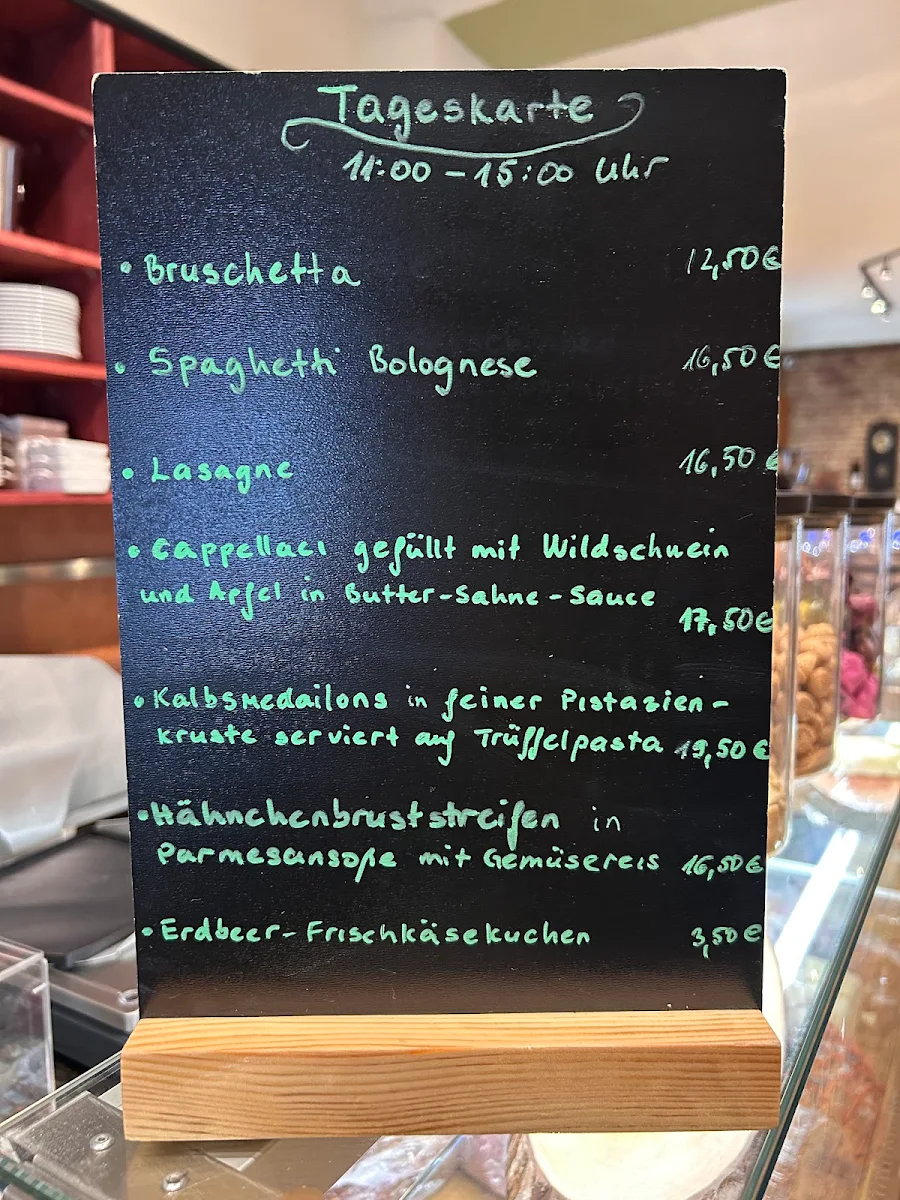 Tageskarte
11:00 - 15:00 Uhr
• Bruschetta 12,50€
• Spaghetti Bolognese 16,50€
• Lasagne 16,50 €
• Cappellaci gefüllt mit Wildschwein
und Apfel in Butter-Sahne-Sauce
17,50€
• Kalbsmedailons in feiner Pistazien-
kruste serviert auf Trüffelpasta 19,50€
• Hähnchenbruststreifen in
Parmesansoße mit Gemüsereis 16,50€
• Erdbeer-Frischkäsekuchen 3,50€